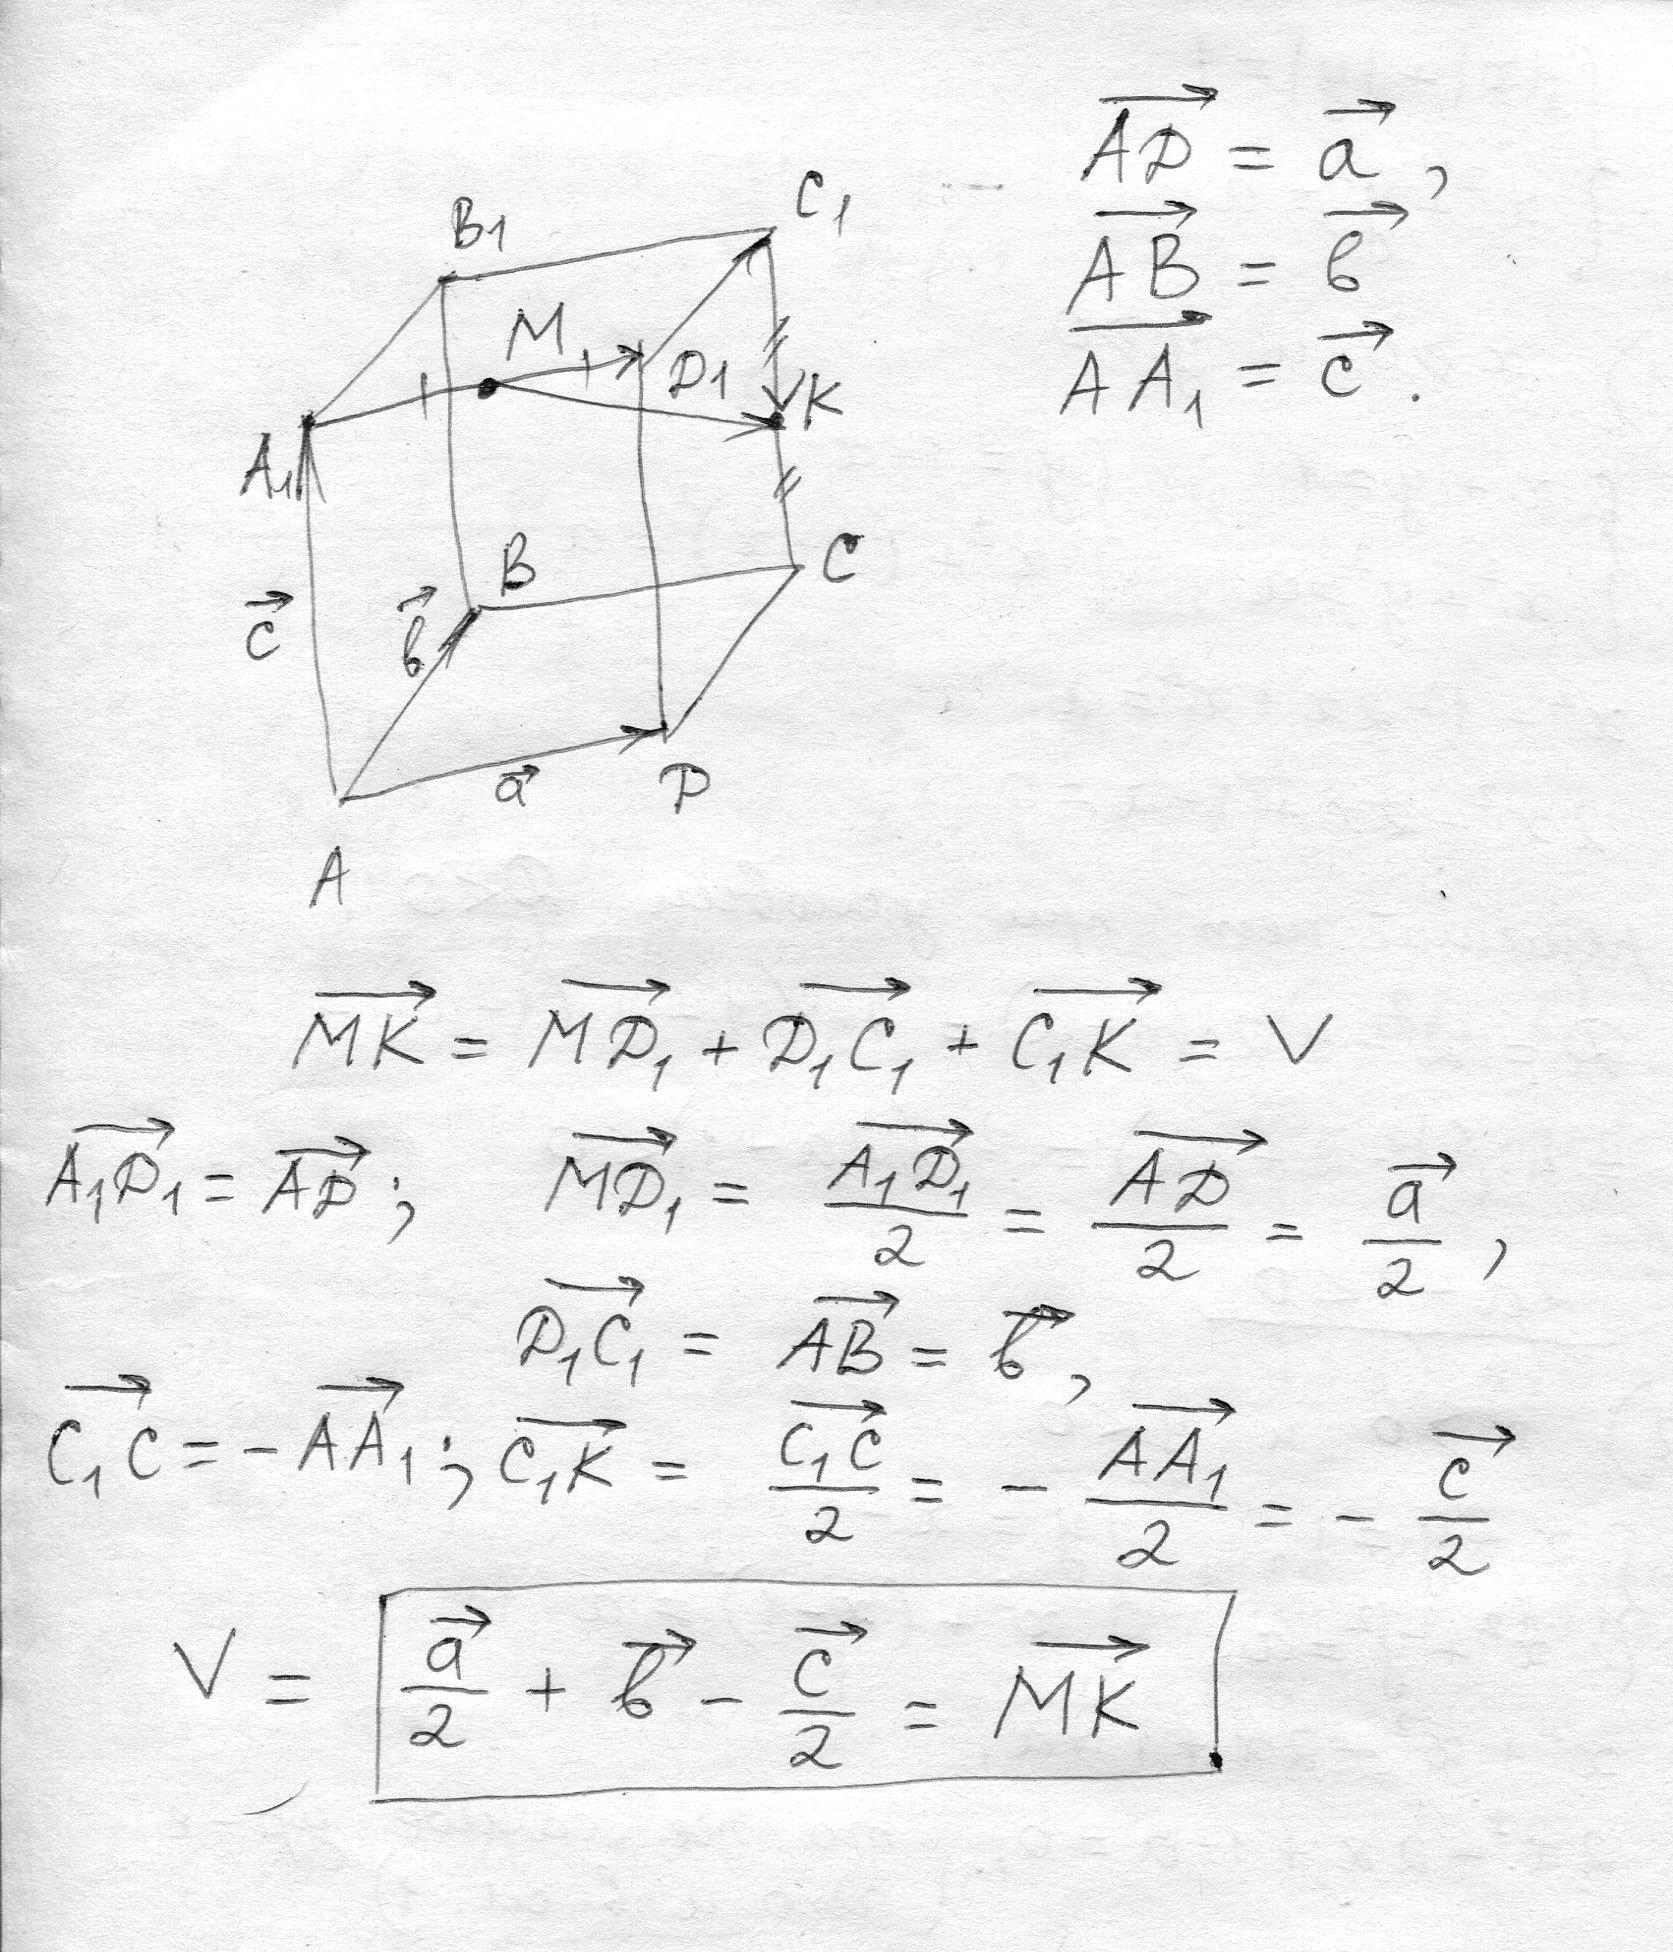 B₁
C₁
M
D₁
K
A₁
B
C
c⃗
b⃗
a⃗
D
A
A͞D⃗ = a⃗,
A͞B⃗ = b⃗
A͞A͞₁⃗ = c⃗.
M͞K⃗ = M͞D͞₁⃗ + D͞₁C͞₁⃗ + C͞₁K⃗ = V
A͞₁D͞₁⃗ = A͞D⃗; M͞D͞₁⃗ = A͞₁D͞₁⃗/2 = A͞D⃗/2 = a⃗/2,
D͞₁C͞₁⃗ = A͞B⃗ = b⃗,
C͞₁C⃗ = -A͞A͞₁⃗; C͞₁K⃗ = C͞₁C⃗/2 = -A͞A͞₁⃗/2 = -c⃗/2
V = a⃗/2 + b⃗ - c⃗/2 = M͞K⃗.